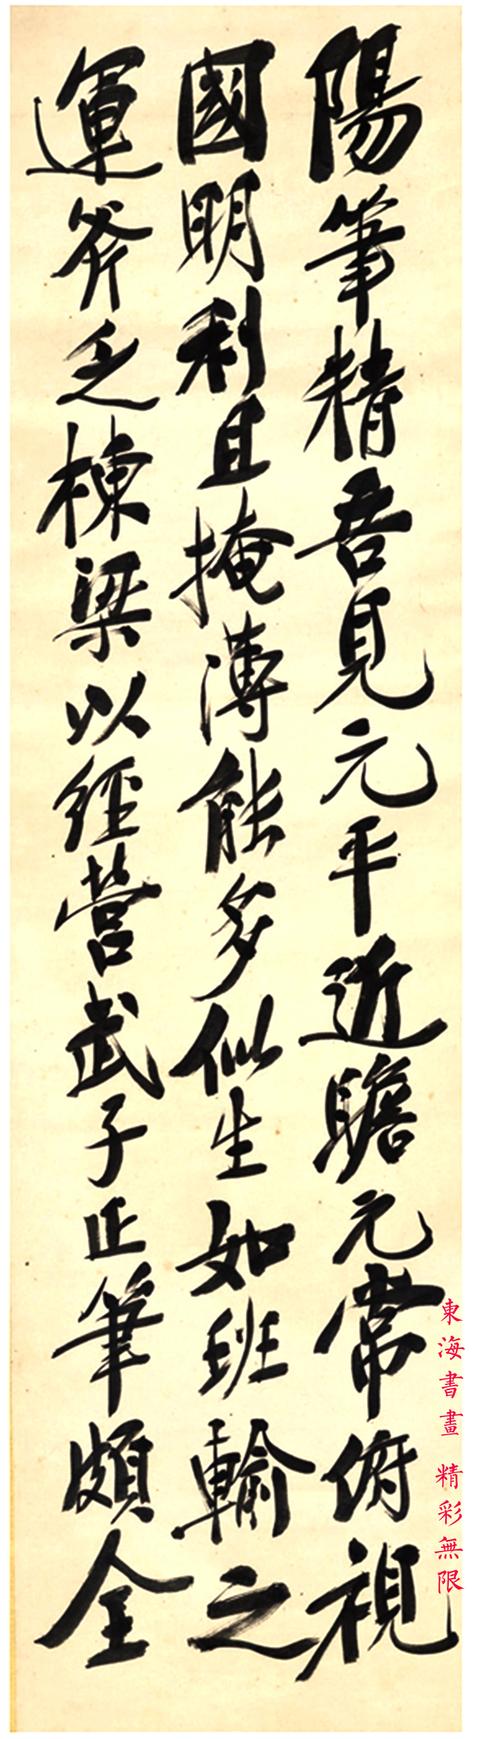 陽筆精吾見元平近瞻元常俯視
國明利且掩薄能多似生如班輸之
運斧乏棟梁以經營武子正筆頗全
東海書畫 精彩無限